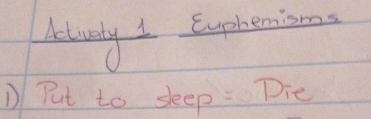 Activaty 1 Euphemisms
1) Put to sleep = Die